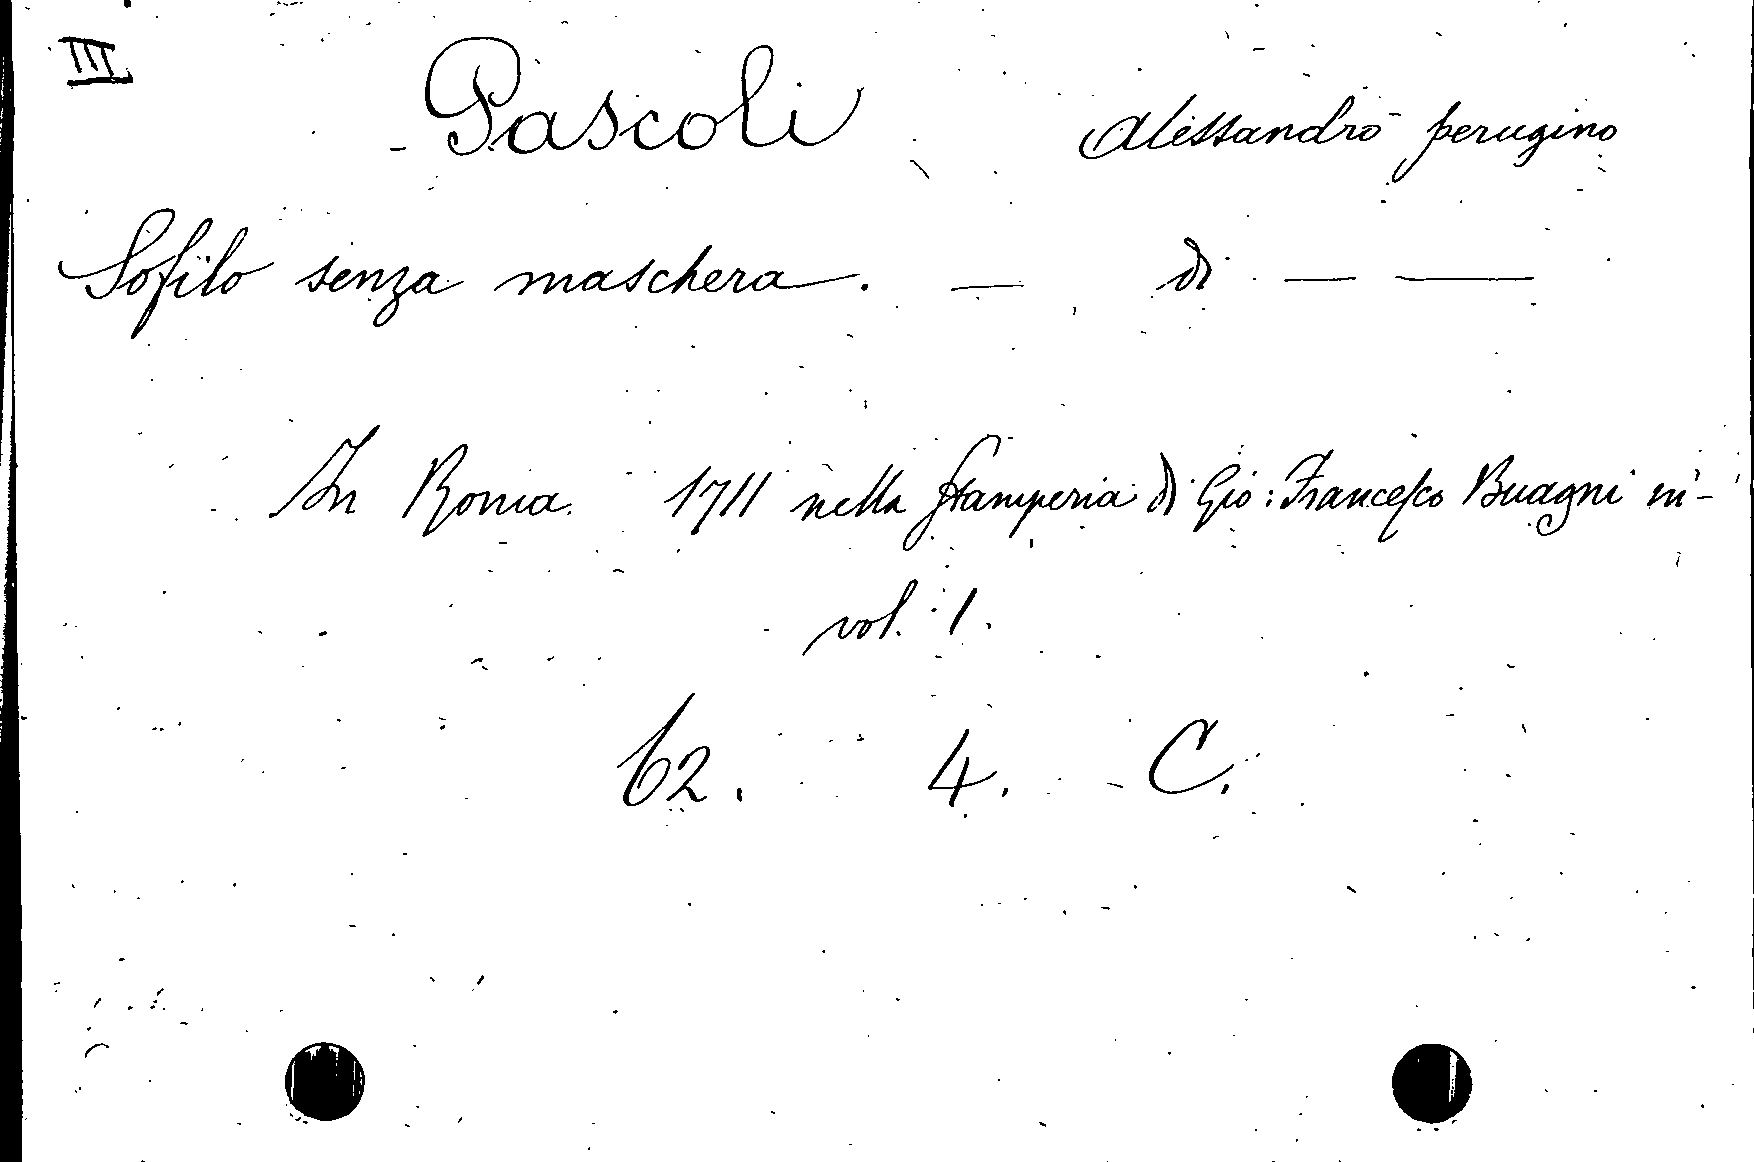 III
Pascoli Alessandro perugino
Sofilo senza maschera. — di — —
In Roma 1711 nella ſtamperia di Gio: Franceſco Buagni in-
vol. 1.
62. 4. C.